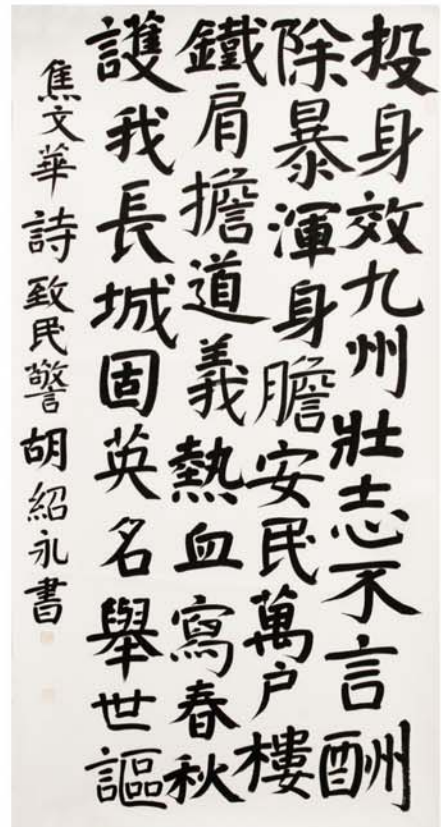 投身效九州壯志不言酬
除暴渾身膽安民萬户樓
鐵肩擔道義熱血寫春秋
護我長城固英名舉世謳
焦文華詩致民警胡紹永書